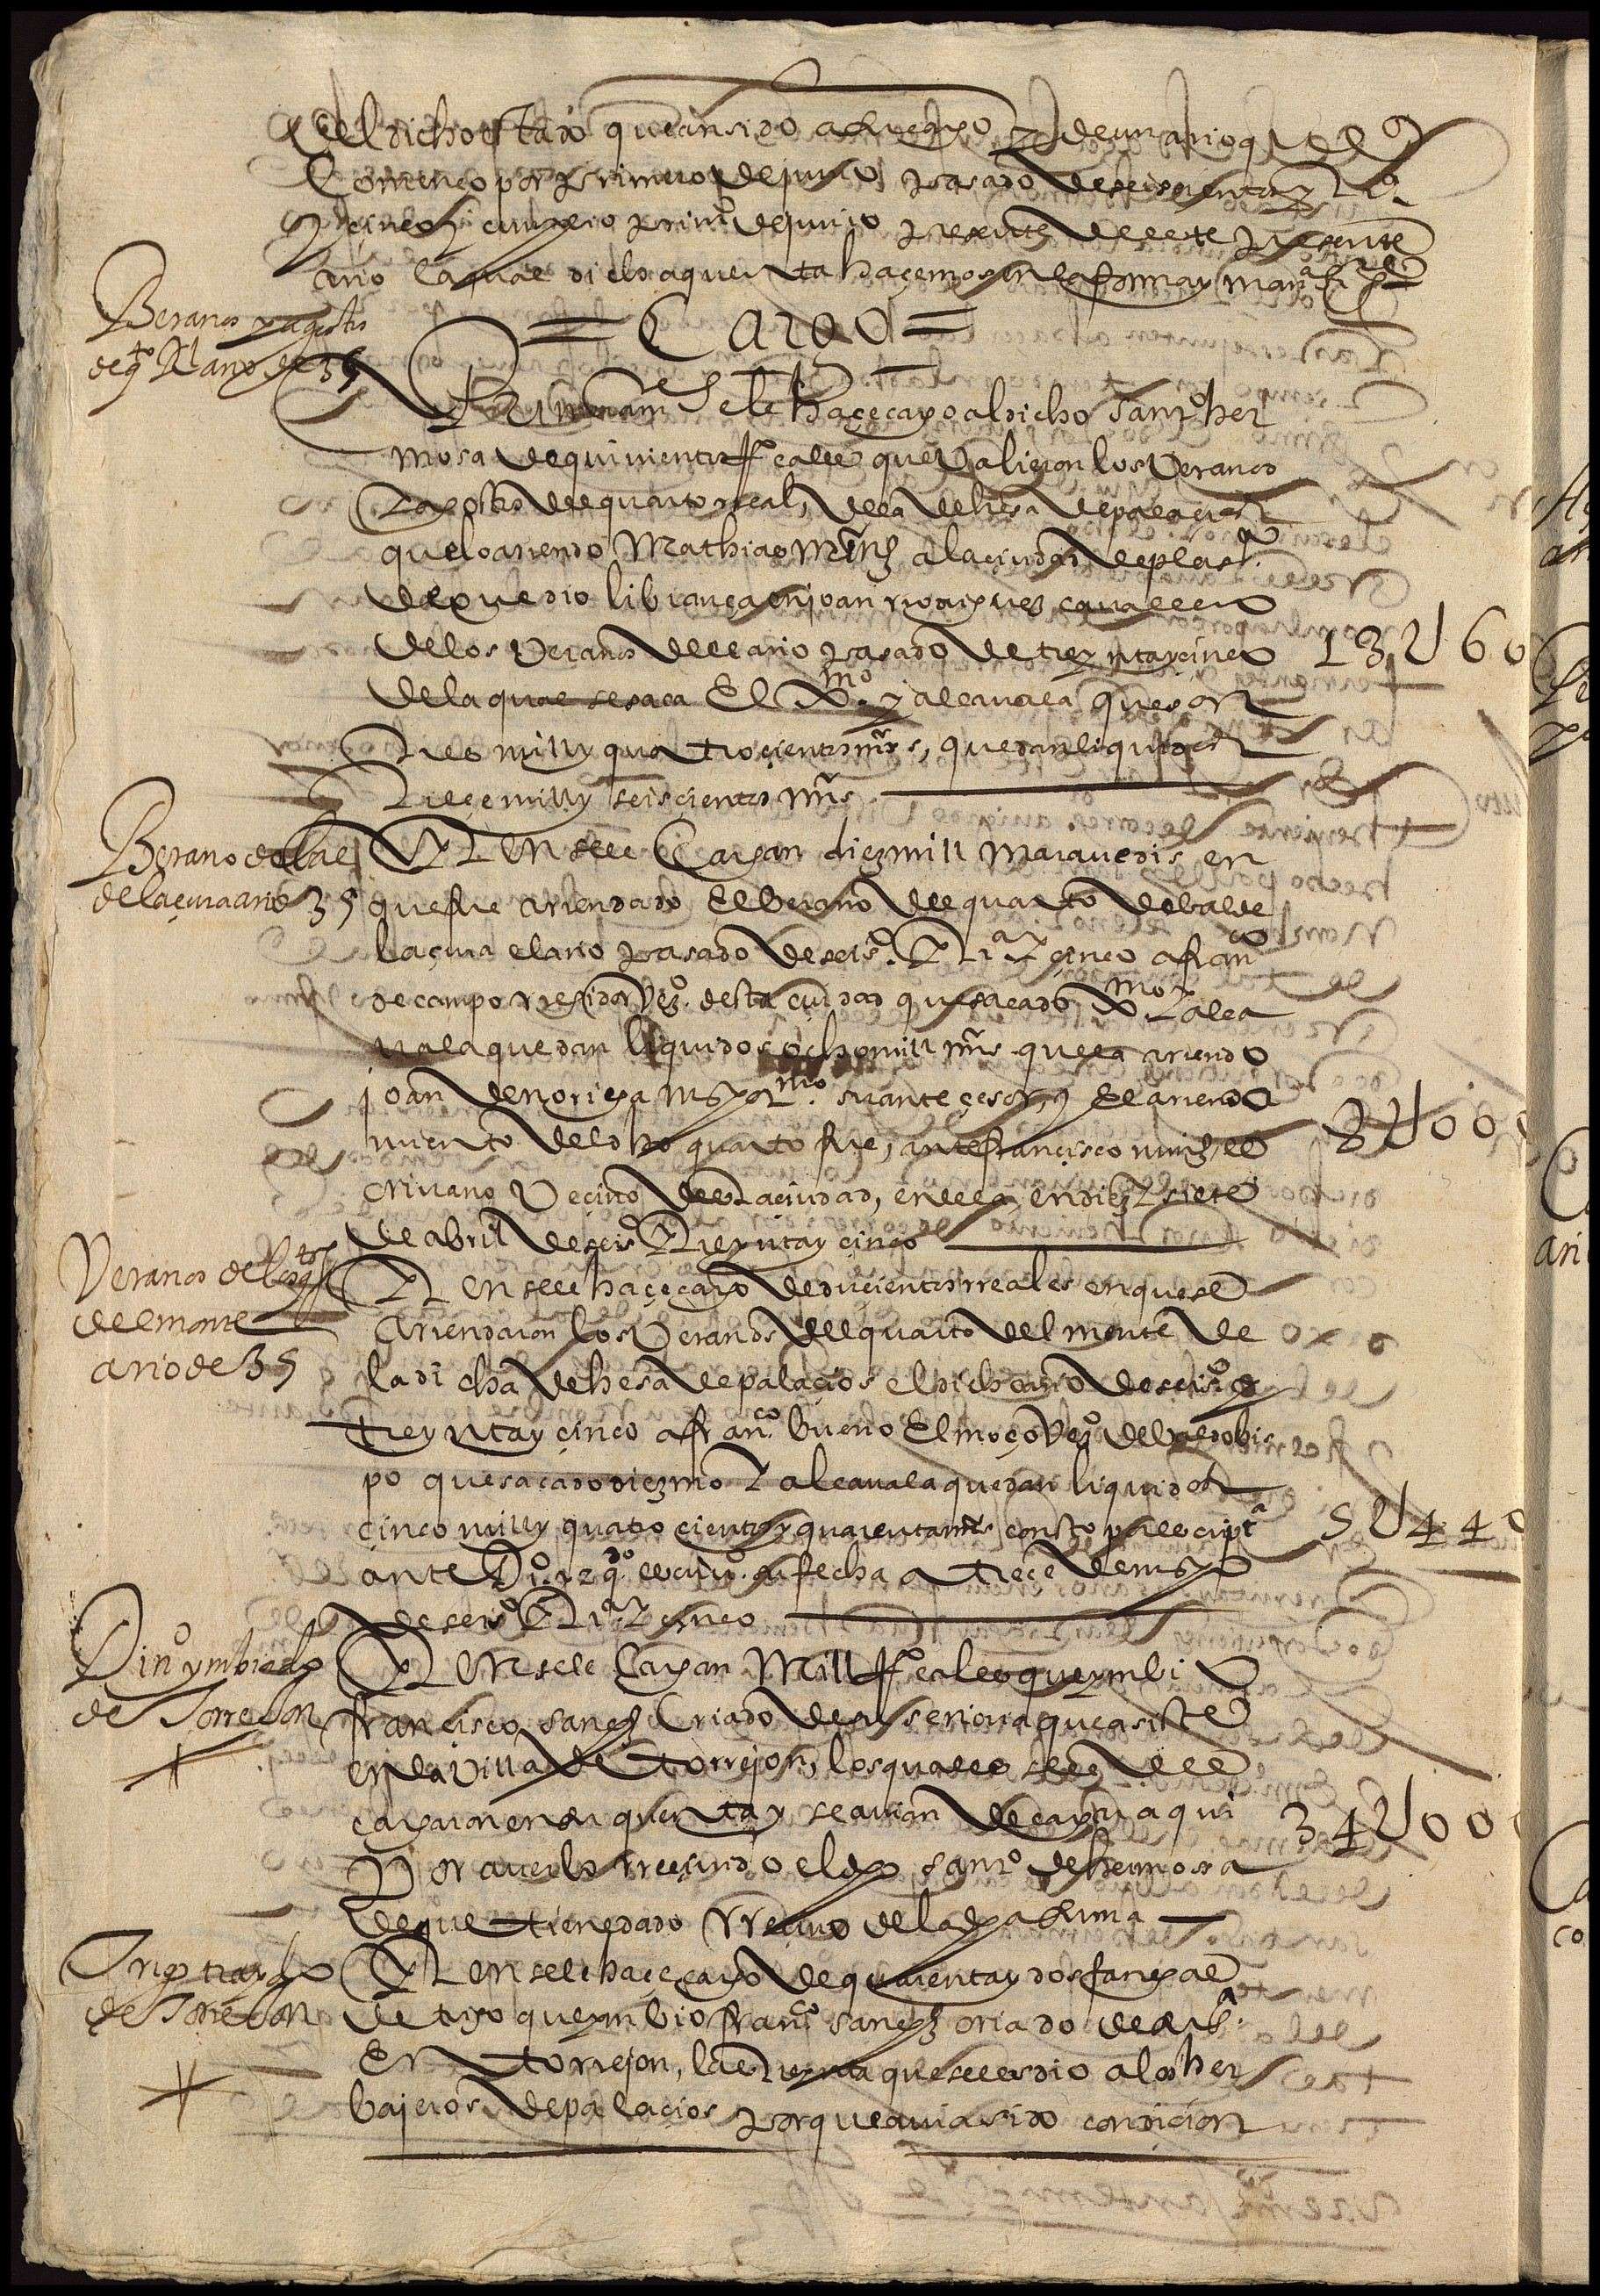 el dicho estado que an sido a su cargo de un año q
Començo por primero de junio pasado de seiscientos y tra.
y cinco y cumplio primo. de junio presente deste presente
año la qual dicha quenta haçemos en la forma y manra. sigte.
= Cargo =
Beranos y agostos
de qto. Rl año de 35
Primeram.te Se le haçe cargo al dicho Santo. her
mosa de quinientos Rs.eales que balieron los Veranos
y agostos del quarto rreal, de la dehesa de palaçios
que lo arrendo Mathias Mrnz a la çiudad de plasa.
de que dio librança en joan rrodriguez cavallero
de los Veranos del año pasado de treynta y cinco
13U60
de la qual se saca El Xmo. y alcavala que son
tres mill y quatroçientos mrs, quedan liquidos
Treçe mill y seiscientos mrs.
Berano de bal
de laçura año 35
Yten se le Cargan diez mill Maravedis en
que fue arrendado El berano del quarto de balde
laçura el año pasado de seiso. Tra y çinco a franco
de campo rregidor Vzo. desta ciudad que sacado Xmo y alca
vala quedan liquidos ocho mill mrs que la arrendo
joan de noriega mayormo. su anteçesor, y El arrenda
miento del dho quarto fue, ante francisco muñz, es
8U00
crivano Veçino desta çiudad, en ella, en diez y siete
de abril de seiso Treynta y çinco
Veranos de los qtos
del monte
año de 35
Yten se le haçe cargo de duçientos rreales en que se
arrendaron los Veranos del quarto del monte de
la dicha dehesa de palaçios el dicho año de seiso y
treynta y çinco a franco. bueno El moço Vzo de valdobis
po que sacado diezmo y alcavala quedan liquidos
cinco mill y quatrocientos y quarenta mrs consto por escripta
5U44
ante Do. izqdo. escrivo. su fecha a treçe de mayo
de seiso Tra y çinco
Dino ymbiado
de Torrejon
Yten se le Cargan Mill Rs.eales que ymbio
françisco sanchz Criado de su señoria que asiste
en la Villa de torrejon, los quales se le
cargaron en su quenta y se avian de cargar aqui
34U00
Por averlos rreçivido el dho santo. de hermosa
de que tiene dado rreçivo de la dha suma
Trigo traydo
de Torrejon
Yten se le haçe cargo de quarenta y dos fanegas
de trigo que ymbio franco sanchz criado de su sa.
En torrejon, las treynta que se les dio a los her
bajeros de palaçios porque avia sido condiçion